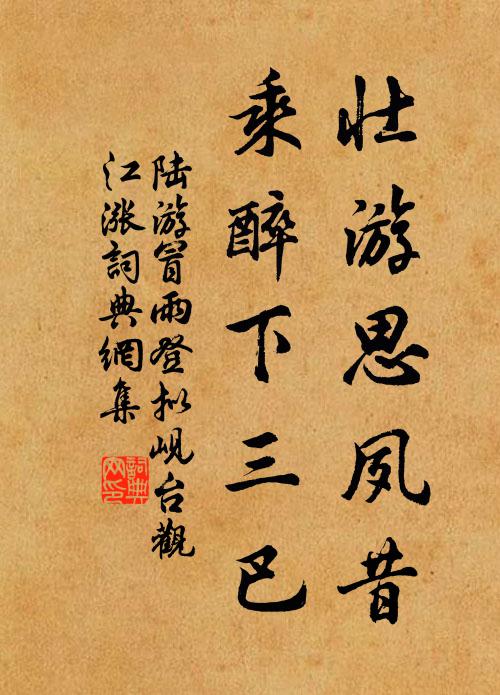 壮游思夙昔
乘醉下三巴
陆游冒雨登拟岘台觀
江涨詞典網集
詞典
网印